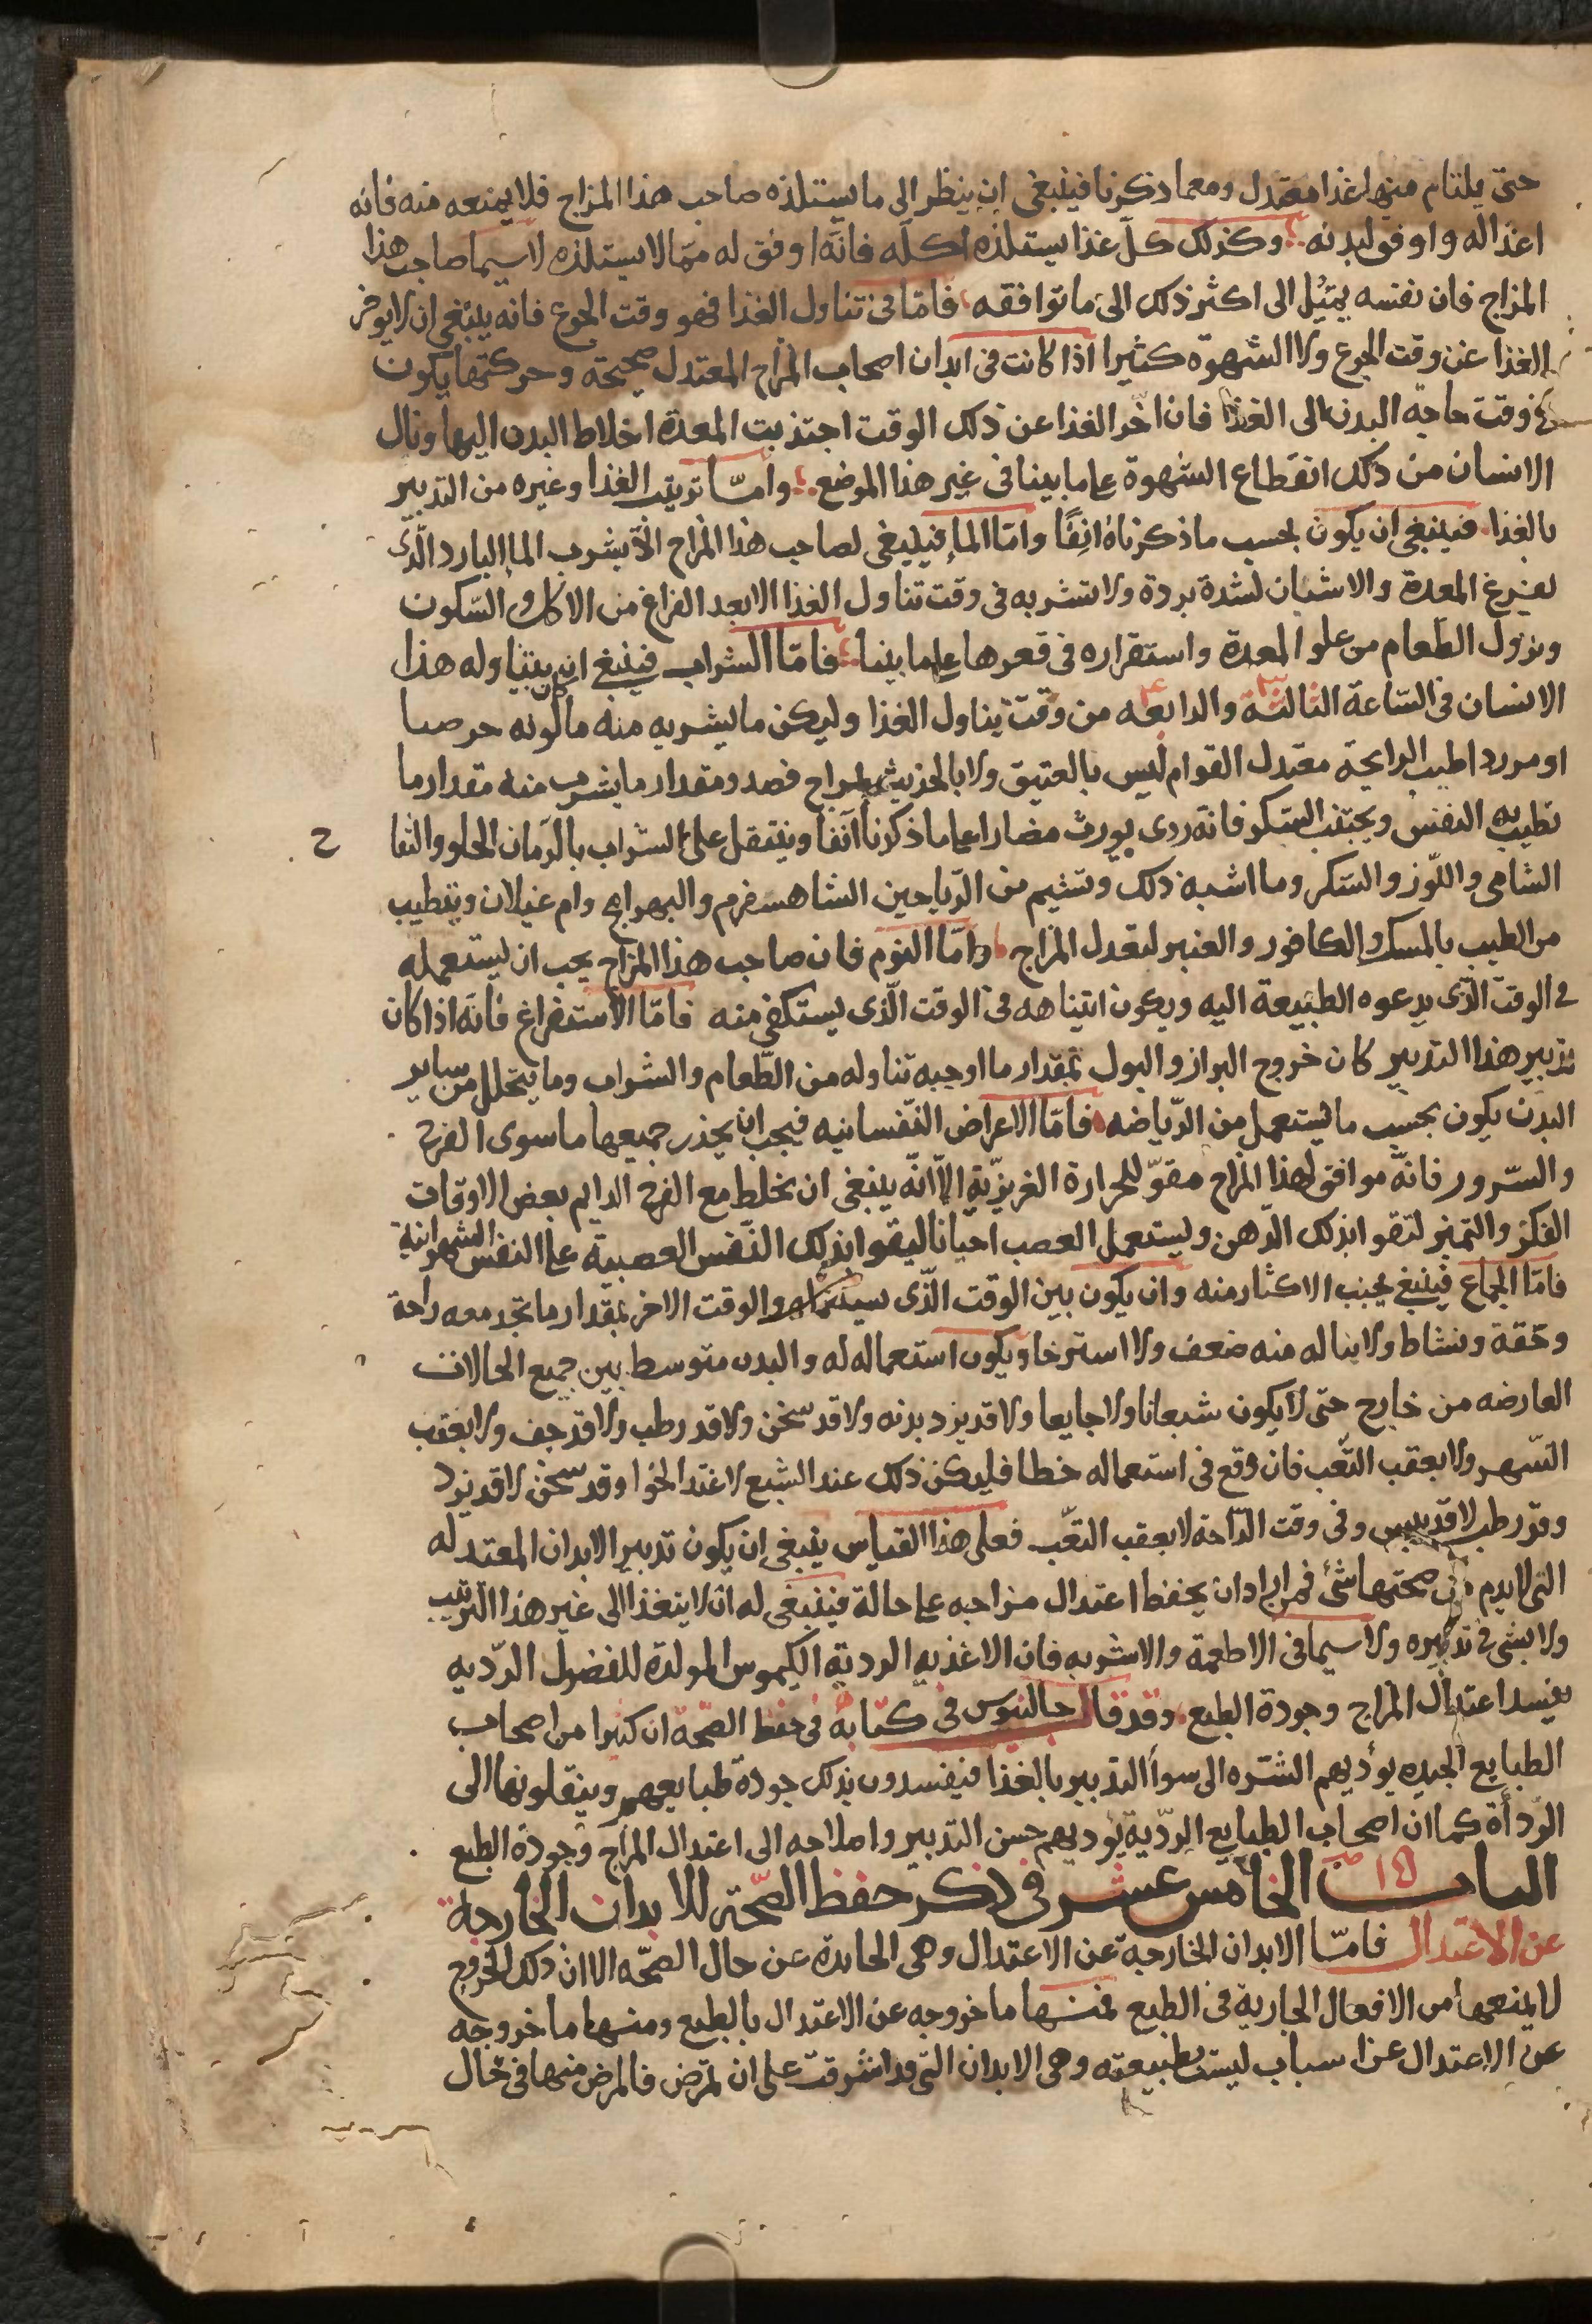 حتى يلتام منها غذا معتدل ومما ذكرنا فينبغى ان ينظر الى ما يستلذه صاحب هذا المزاج فلا يمنعه منه فانه
اغذا له واوفق لبدنه وكذلك كلّ غذا يستلذه اكله فانه اوفق له ممّا لا يستلذه لا سيما صاحب هذا
المزاج فان نفسه يميل الى اكثر ذلك الى ما توافقه فامّا فى تناول الغذا فهو وقت الجوع فانه ينبغى ان لا يوخر
الغذا عن وقت الجوع ولا الشهوة كثيرا اذا كانت فى ابدان اصحاب المزاج المعتدل صحيحة وحركتها يكون
فى وقت حاجة البدن الى الغذا فان اخّر الغذا عن ذلك الوقت اجتذبت المعدة اخلاط البدن اليها ونال
الانسان من ذلك انقطاع الشهوة على ما بينا فى غير هذا الموضع وامّا ترتيب الغذا وغيره من التدبير
بالغذا فينبغى ان يكون بحسب ما ذكرناه انفًا وامّا الما فينبغى لصاحب هذا المزاج الّا يشرب الما البارد الّذى
يقرع المعدة والاسنان لشدة بردة ولا يشربه فى وقت تناول الغذا الا بعد الفراغ من الاكل والسّكون
ونزول الطعام من علو المعدة واستقراره فى قعرها على ما بينا فامّا الشراب فينبغى ان يتناوله هذا
الانسان فى السّاعة الثالثة والرابعة من وقت تناول الغذا وليكن ما يشربه منه ما لونه
او مورد اطيب الرايحة معتدل القوام ليس بالعتيق ولا بالحديث ومقدار ما يشرب منه مقدار ما
تطيب به النفس ويجتنب السكر فانه ردى يورث مضارا على ما ذكرنا آنفا وينتقل على الشراب بالرمان الحلو والتفا ح
الشامى واللّوز والسّكر وما اشبه ذلك ويشم من الرّياحين الشاهسفرم والبهرامج وام غيلان ويتطيب
من الطيب بالمسك والكافور والعنبر لتعدل المزاج وامّا النوم فان صاحب هذا المزاج يجب ان يستعمله
فى الوقت الّذى يدعوه الطبيعة اليه ويكون انتباهه فى الوقت الّذى يستكفى منه فامّا الاستفراغ فانه اذا كان
تدبير هذا التدبير كان خروج البراز والبول بمقدار ما اوجبه تناوله من الطّعام والشراب وما يتحلل من ساير
البدن يكون بحسب ما يستعمل من الرّياضه فامّا الاعراض النّفسانيه فيجب ان يحذر جميعها ما سوى الفرح
والسّرور فانّه موافق لهذا المزاج مقوّ للحرارة الغريزيّة الّا انّه ينبغى ان يخلط مع الفرح الدايم بعض الاوقات
الفكر والتميز لتقوا بذلك الذّهن وليستعمل الغضب احيانا ليقوا بذلك النّفس الغضبية على النفس الشهوانية
فامّا الجماع فينبغى يجنب الاكثار منه وان يكون بين الوقت الّذى والوقت الاخر بمقدار ما تجد معه راحة
وخفة ونشاط ولا يناله منه ضعف ولا استرخا ويكون استعماله له والبدن متوسط بين جميع الحالات
العارضه من خارج حتى لا يكون شبعانا ولا جايعا ولا قد برد بدنه ولا قد سخن ولا قد رطب ولا قد جف ولا بعقب
السّهر ولا بعقب التّعب فان وقع فى استعماله خطا فليكن ذلك عند الشبع لا عند الخوا وقد سخن لا قد برد
وقد رطب لا قد يبس وفى وقت الرّاحة لا بعقب التعّب فعلى هذا القياس ينبغى ان يكون تدبير الابدان المعتدله
التى لا يذم من صحتها شئ فمن اراد ان يحفظ اعتدال مزاجه على حالة فينبغى له ان لا يتغذا الى غير هذا الترتيب
ولا بشى فى تدبيره ولا سيما فى الاطعمة والاشربه فان الاغذيه الرديّة الكيموس المولدة للفضول الرّديه
يفسد اعتدال المزاج وجودة الطبع وقد قال جالينوس فى كتابه فى حفظ الصّحة ان كثيرا من اصحاب
الطبايع الجيده يوديهم الشره الى سوأ التدبير بالغذا فيفسدون بذلك جودة طبايعهم وينقلونها الى
الرّدأة كما ان اصحاب الطبايع الرّديّة يوديهم حسن التدبير واصلاحه الى اعتدال المزاج وجودة الطبع
الباب الخامس عشر فى ذكر حفظ الصّحّة للابدان الخارجة
عن الاعتدال فامّا الابدان الخارجة عن الاعتدال وهى الحايدة عن حال الصحّه الا ان ذلك الخروج
لا يمنعها من الافعال الجارية فى الطبع فمنها ما خروجه عن الاعتدال بالطبع ومنها ما خروجه
عن الاعتدال عن اسباب ليست بطبيعته وهى الابدان التّى قد اشرفت على ان تمرض فالمرض منها فى حال